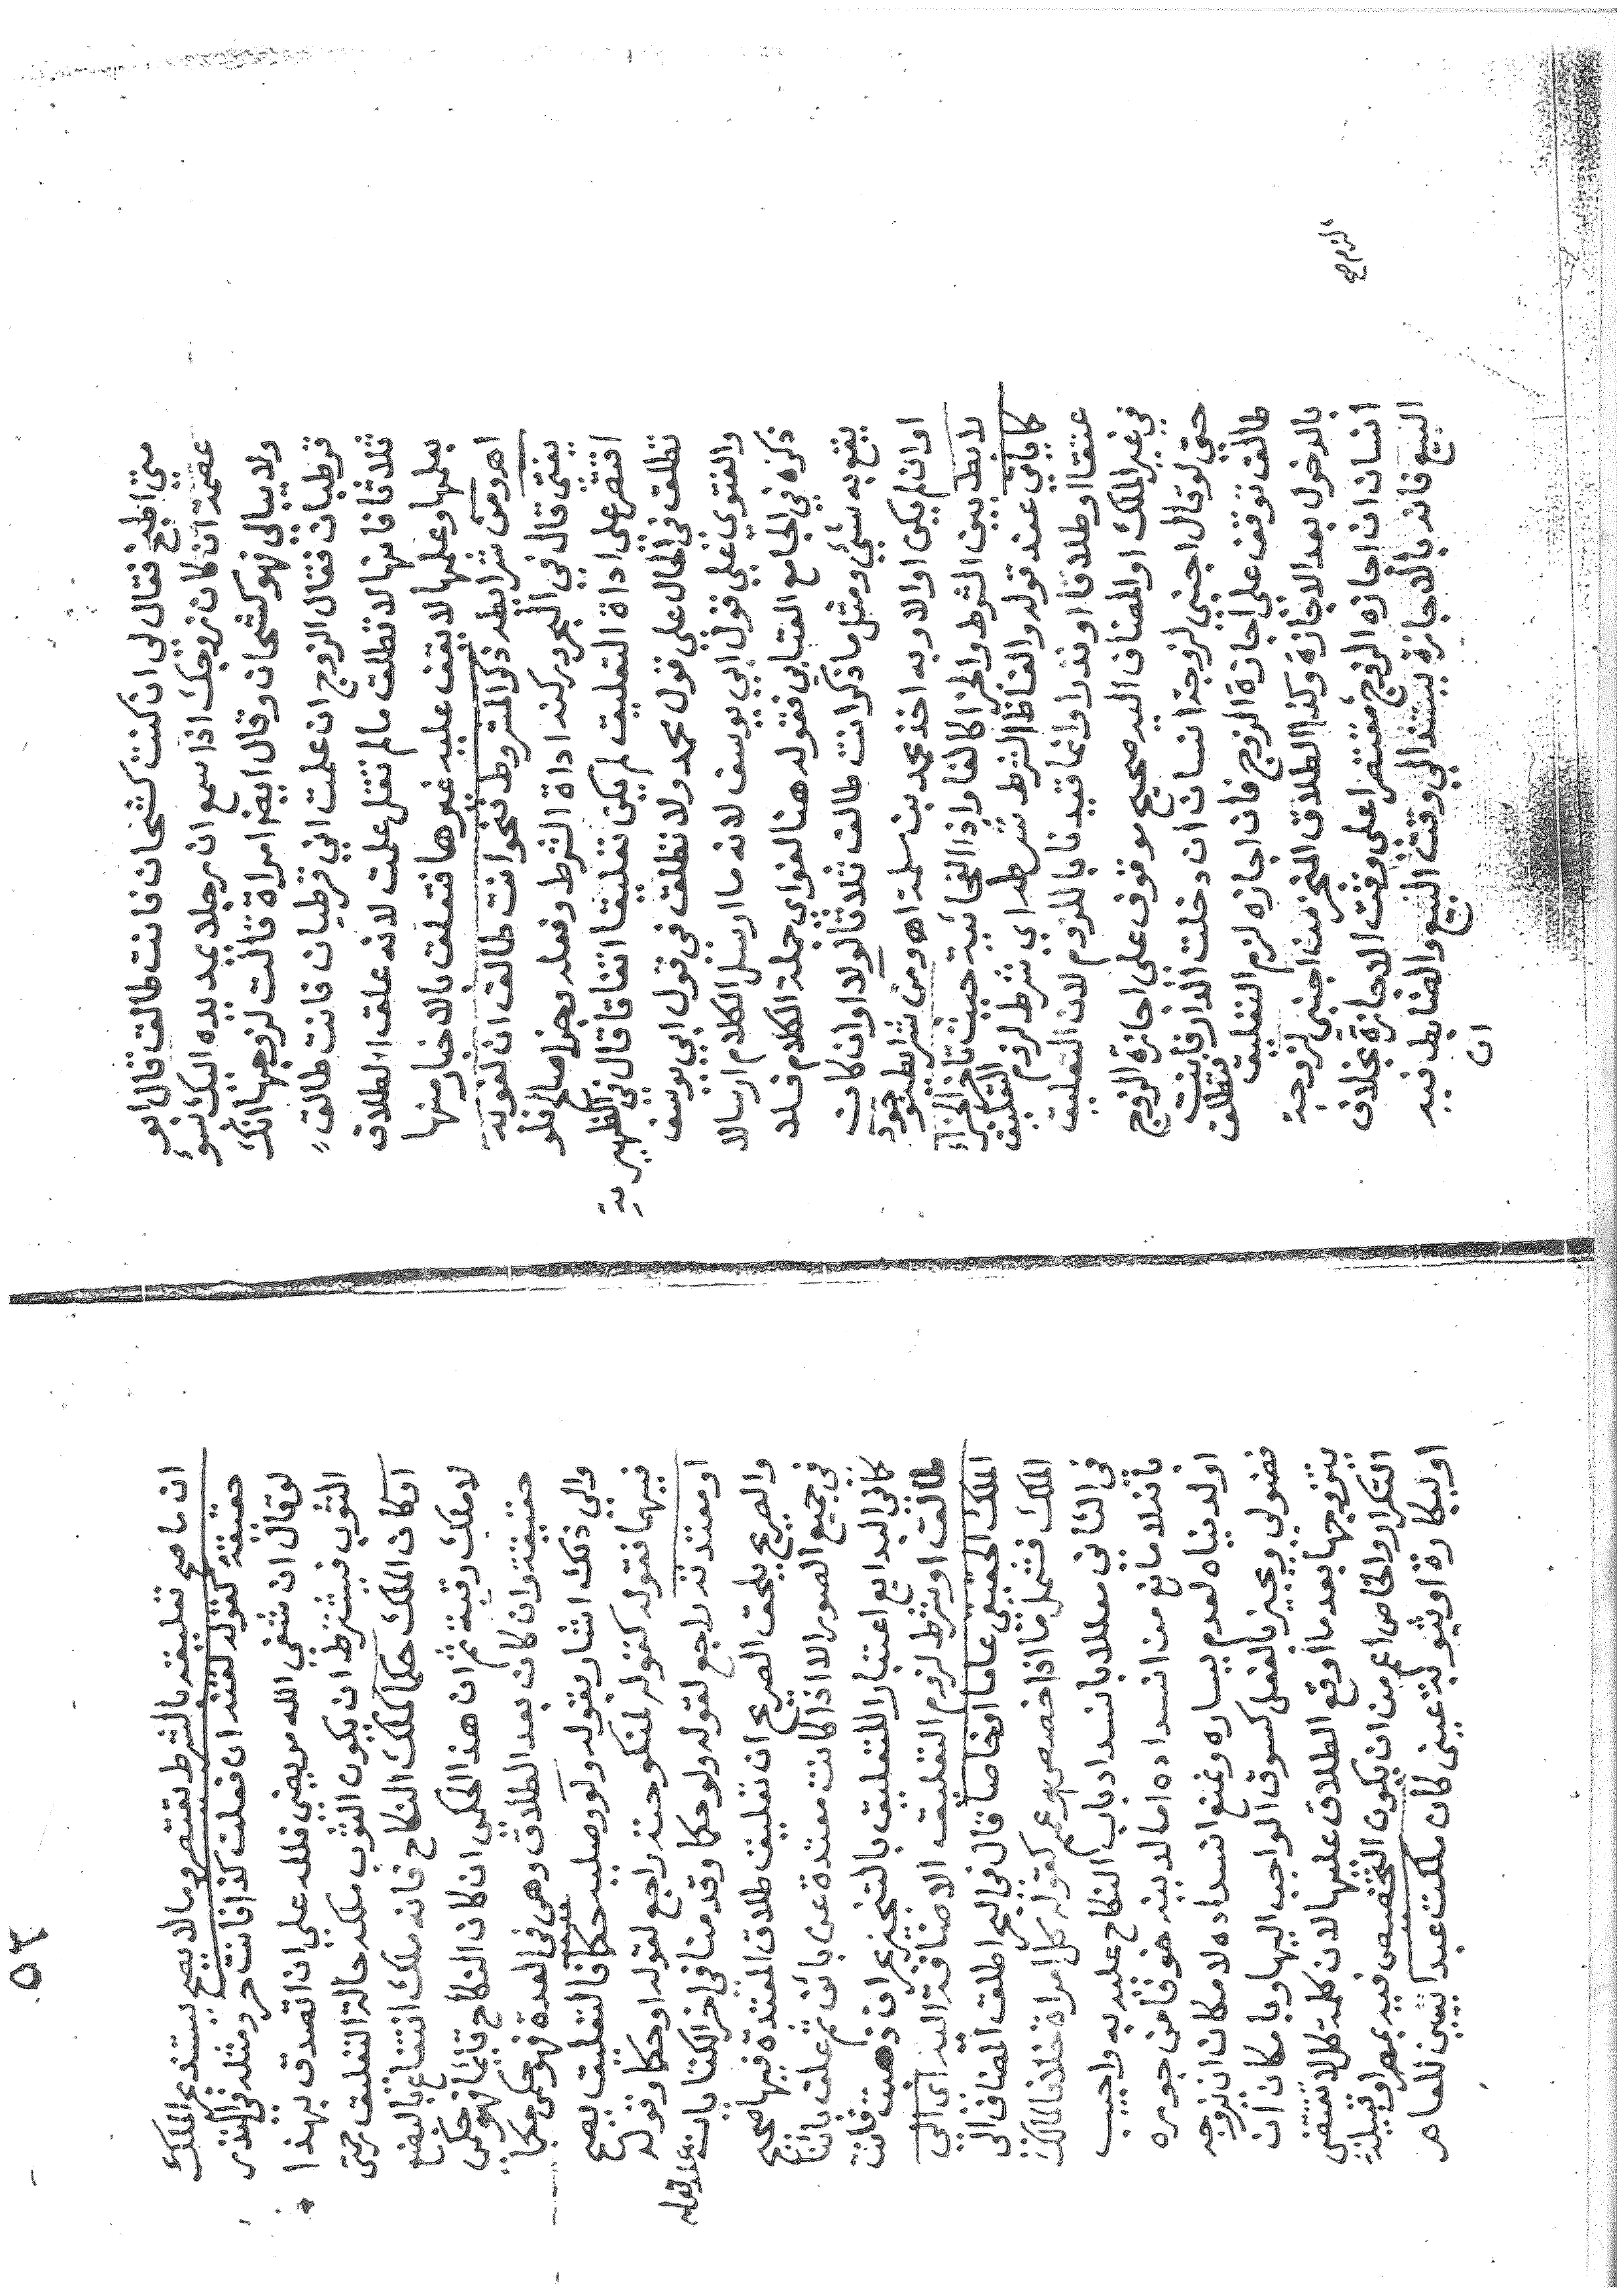 متى اطبخ فقال لي ان كنت كشخان فانت طالق قال ابو
عصمة ان كان زوجك اذا سمع ان رجلا يمد يده اليك بسوء
ولا يبالي فهو كشخان وقال ايضا امراة قالت لزوجها انك
قرطبان فقال الزوج ان علمت اني قرطبان فانت طالق
ثلاثا فانها لا تطلق ما لم تقل علمت لانه علق الطلاق
بعلمها وعلمها لا يقف عليه غيرها فتعلق بالاخبار منها
اه ومن شرايطه ذكر المشروط فنحو انت طالق ان لغو به
يفتى قال في البحر وركنه اداة الشرط وفعله بجزا صالح فلو
اقتصر على اداة التعليق لم يكن تعليقا اتفاقا قال في الظهيرية
تطلق في الحال على قول محمد ولا تطلق في قول ابي يوسف
والفتوى على قول ابي يوسف لانه ما ارسل الكلام ارسالا
ذكره في الجامع العتابي فقوله هنا لغو اي جملة الكلام فلا
يقع به شئ ومثل ما ذكر انت طالق ثلاثا لولا او وان كان
او ان لم يكن او الا وبه اخذ محمد بن سلمة اه ومن شرايطه وجود
رابط بين الشرط والجزا كالفا واذا الفجائية حيث تاخر الجزاء
كما ياتي عند قوله والفاظ الشرط شرطه اي شرط لزوم التعليق
عتقا او طلاقا او نذرا وانما قيدنا باللزوم لان التعليق
في غير الملك او المضاف اليه صحيح موقوف على اجازة الزوج
حتى لو قال اجنبي لزوجة انسان ان دخلت الدار فانت
طالق توقف على اجازة الزوج فان اجازه لزم التعليق فتطلق
بالدخول بعد الاجازة وكذا الطلاق المنجز من اجنبي لزوجة
انسان ان اجازه الزوج مقتصرا على وقت الاجازة بخلاف
البيع فانه بالاجازة يستند الى وقت البيع والضابط فيه
ان
الزوج
٥٢
ان ما صح تعليقه بالشرط يقتصر وما لا يصح يستند بحر الملك
حقيقة كقوله لقنه ان فعلت كذا فانت حر ومثله في النذر
لو قال ان شفى الله مريضي فلله علي ان اتصدق بهذا
الثوب فيشترط ان يكون الثوب ملكه حالة التعليق حتى
او كان الملك حكما كملك النكاح فانه ملك انتفاع بالبضع
لا ملك رقبة ثم ان هذا الحكمي ان كان النكاح قائما فهو حكمي
حقيقة وان كان بعد الطلاق وهي في العدة فهو حكمي حكما
والى ذلك اشار بقوله ولو وصليه حكما فالتعليق يصح
فيهما فقوله كقوله لمنكوحته راجع لقوله او حكما وقوله
او معتدته راجع لقوله ولو حكما وقدمنا في اخر الكنايات عند قوله
والصريح يلحق الصريح ان تعليق طلاق المعتدة فيها صحيح
في جميع الصور الا اذا كانت معتدة عن بائن ثم علق بائنا
كما في البدايع اعتبارا للتعليق بالتنجيز بحر ان ذهبت فانت
طالق او شرط لزوم التعليق الاضافة اليه اى الى
الملك الحقيقي عاما او خاصا قال في البحر اطلق المضاف الى
الملك فشمل ما اذا خصص او عمم كقوله كل امراة خلافا لمالك
في الثاني معللا بانسداد باب النكاح عليه به واجيب
بانه لا مانع من انسداده اما لدينه خوفا من جوره
او لدنياه لعدم يساره ونمنع انسداده لامكان ان تزوجه
فضولي ويجيز بالفعل كسوق الواجب اليها وبامكان ان
يتزوجها بعد ما اوقع الطلاق عليها لان كلمة كل لا تقتضي
التكرار والخاص اعم من ان يكون التخصيص فيه بمصر او قبيلة
او ببكارة او ثيوبة كان ملكت عبدا لمعين